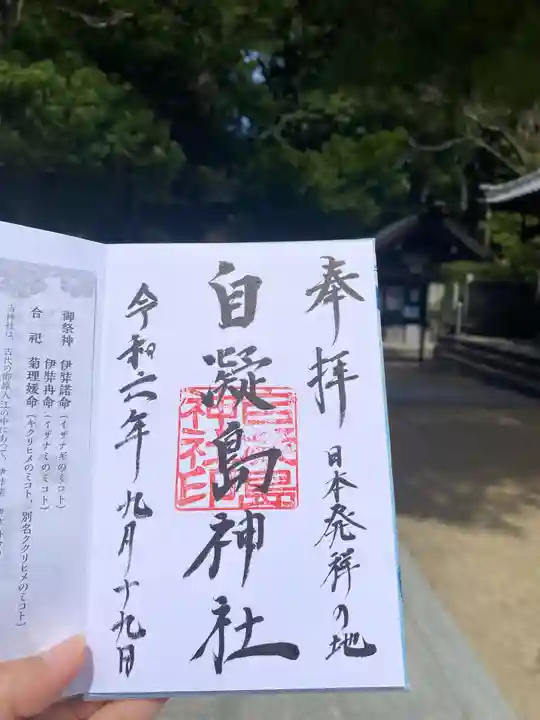 奉拝
日本発祥の地
自凝島神社
自凝島
神社印
令和六年九月十九日
御祭神 伊弉諾命(イザナギのミコト)
伊弉冉命(イザナミのミコト)
合祀 菊理媛命(キクリヒメのミコト、別名ククリヒメのミコト)
当神社は、古代の御原入江の中にあって、伊弉諾